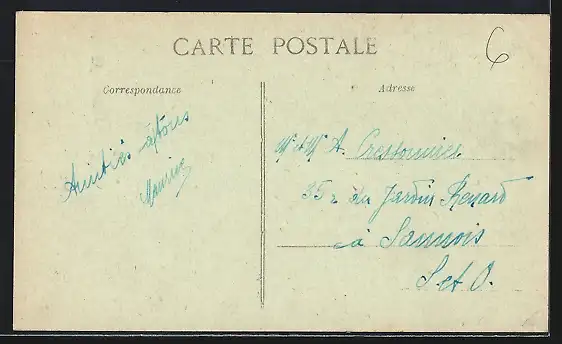 CARTE POSTALE
6
Correspondance
Adresse
Amitiés à tous
Maurice
Mr et Me A. Crestonnier
35 r du Jardin Renard
à Sannois
S. et O.